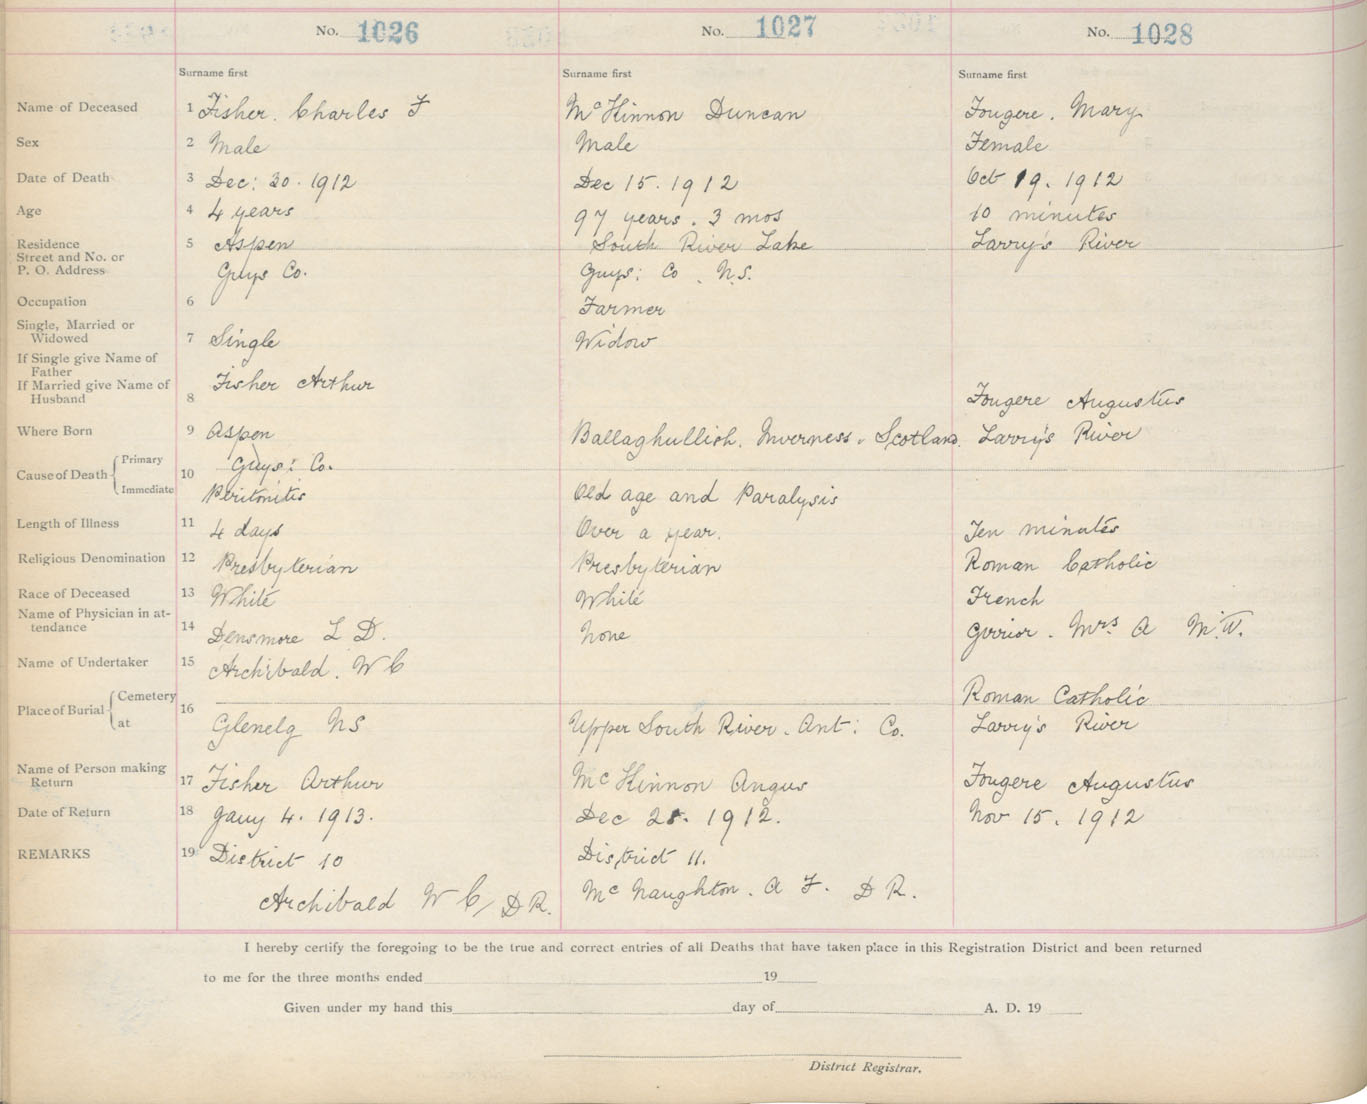 No. 1026 No. 1027 No. 1028
Surname first Surname first Surname first
Name of Deceased 1 Fisher. Charles F McKinnon Duncan Fougere. Mary
Sex 2 Male Male Female
Date of Death 3 Dec: 30. 1912 Dec 15. 1912 Oct 19. 1912
Age 4 4 years 97 years. 3 mos 10 minutes
Residence 5 Aspen South River Lake Larry's River
Street and No. or
P. O. Address Guys Co. Guys: Co. N.S.
Occupation 6 Farmer
Single, Married or
Widowed 7 Single Widow
If Single give Name of
Father
Fisher Arthur
If Married give Name of
Husband 8 Fougere Augustus
Where Born 9 Aspen Ballaghullish. Inverness. Scotland. Larry's River
Guys: Co.
Cause of Death { Primary
10
Immediate Peritonitis Old age and Paralysis
Length of Illness 11 4 days Over a year. Ten minutes
Religious Denomination 12 Presbyterian Presbyterian Roman Catholic
Race of Deceased 13 White White French
Name of Physician in at-
tendance 14 Densmore L D. None Girrior. Mrs A M.W.
Name of Undertaker 15 Archibald. W C
Place of Burial { Cemetery 16 Roman Catholic
at Glenelg NS Upper South River. Ant: Co. Larry's River
Name of Person making
Return 17 Fisher Arthur McKinnon Angus Fougere Augustus
Date of Return 18 Jany 4. 1913. Dec 28. 1912. Nov 15. 1912
REMARKS 19 District 10 District 11.
Archibald W C, D R. McNaughton. A F. D R.
I hereby certify the foregoing to be the true and correct entries of all Deaths that have taken place in this Registration District and been returned
to me for the three months ended 19
Given under my hand this day of A. D. 19
District Registrar.